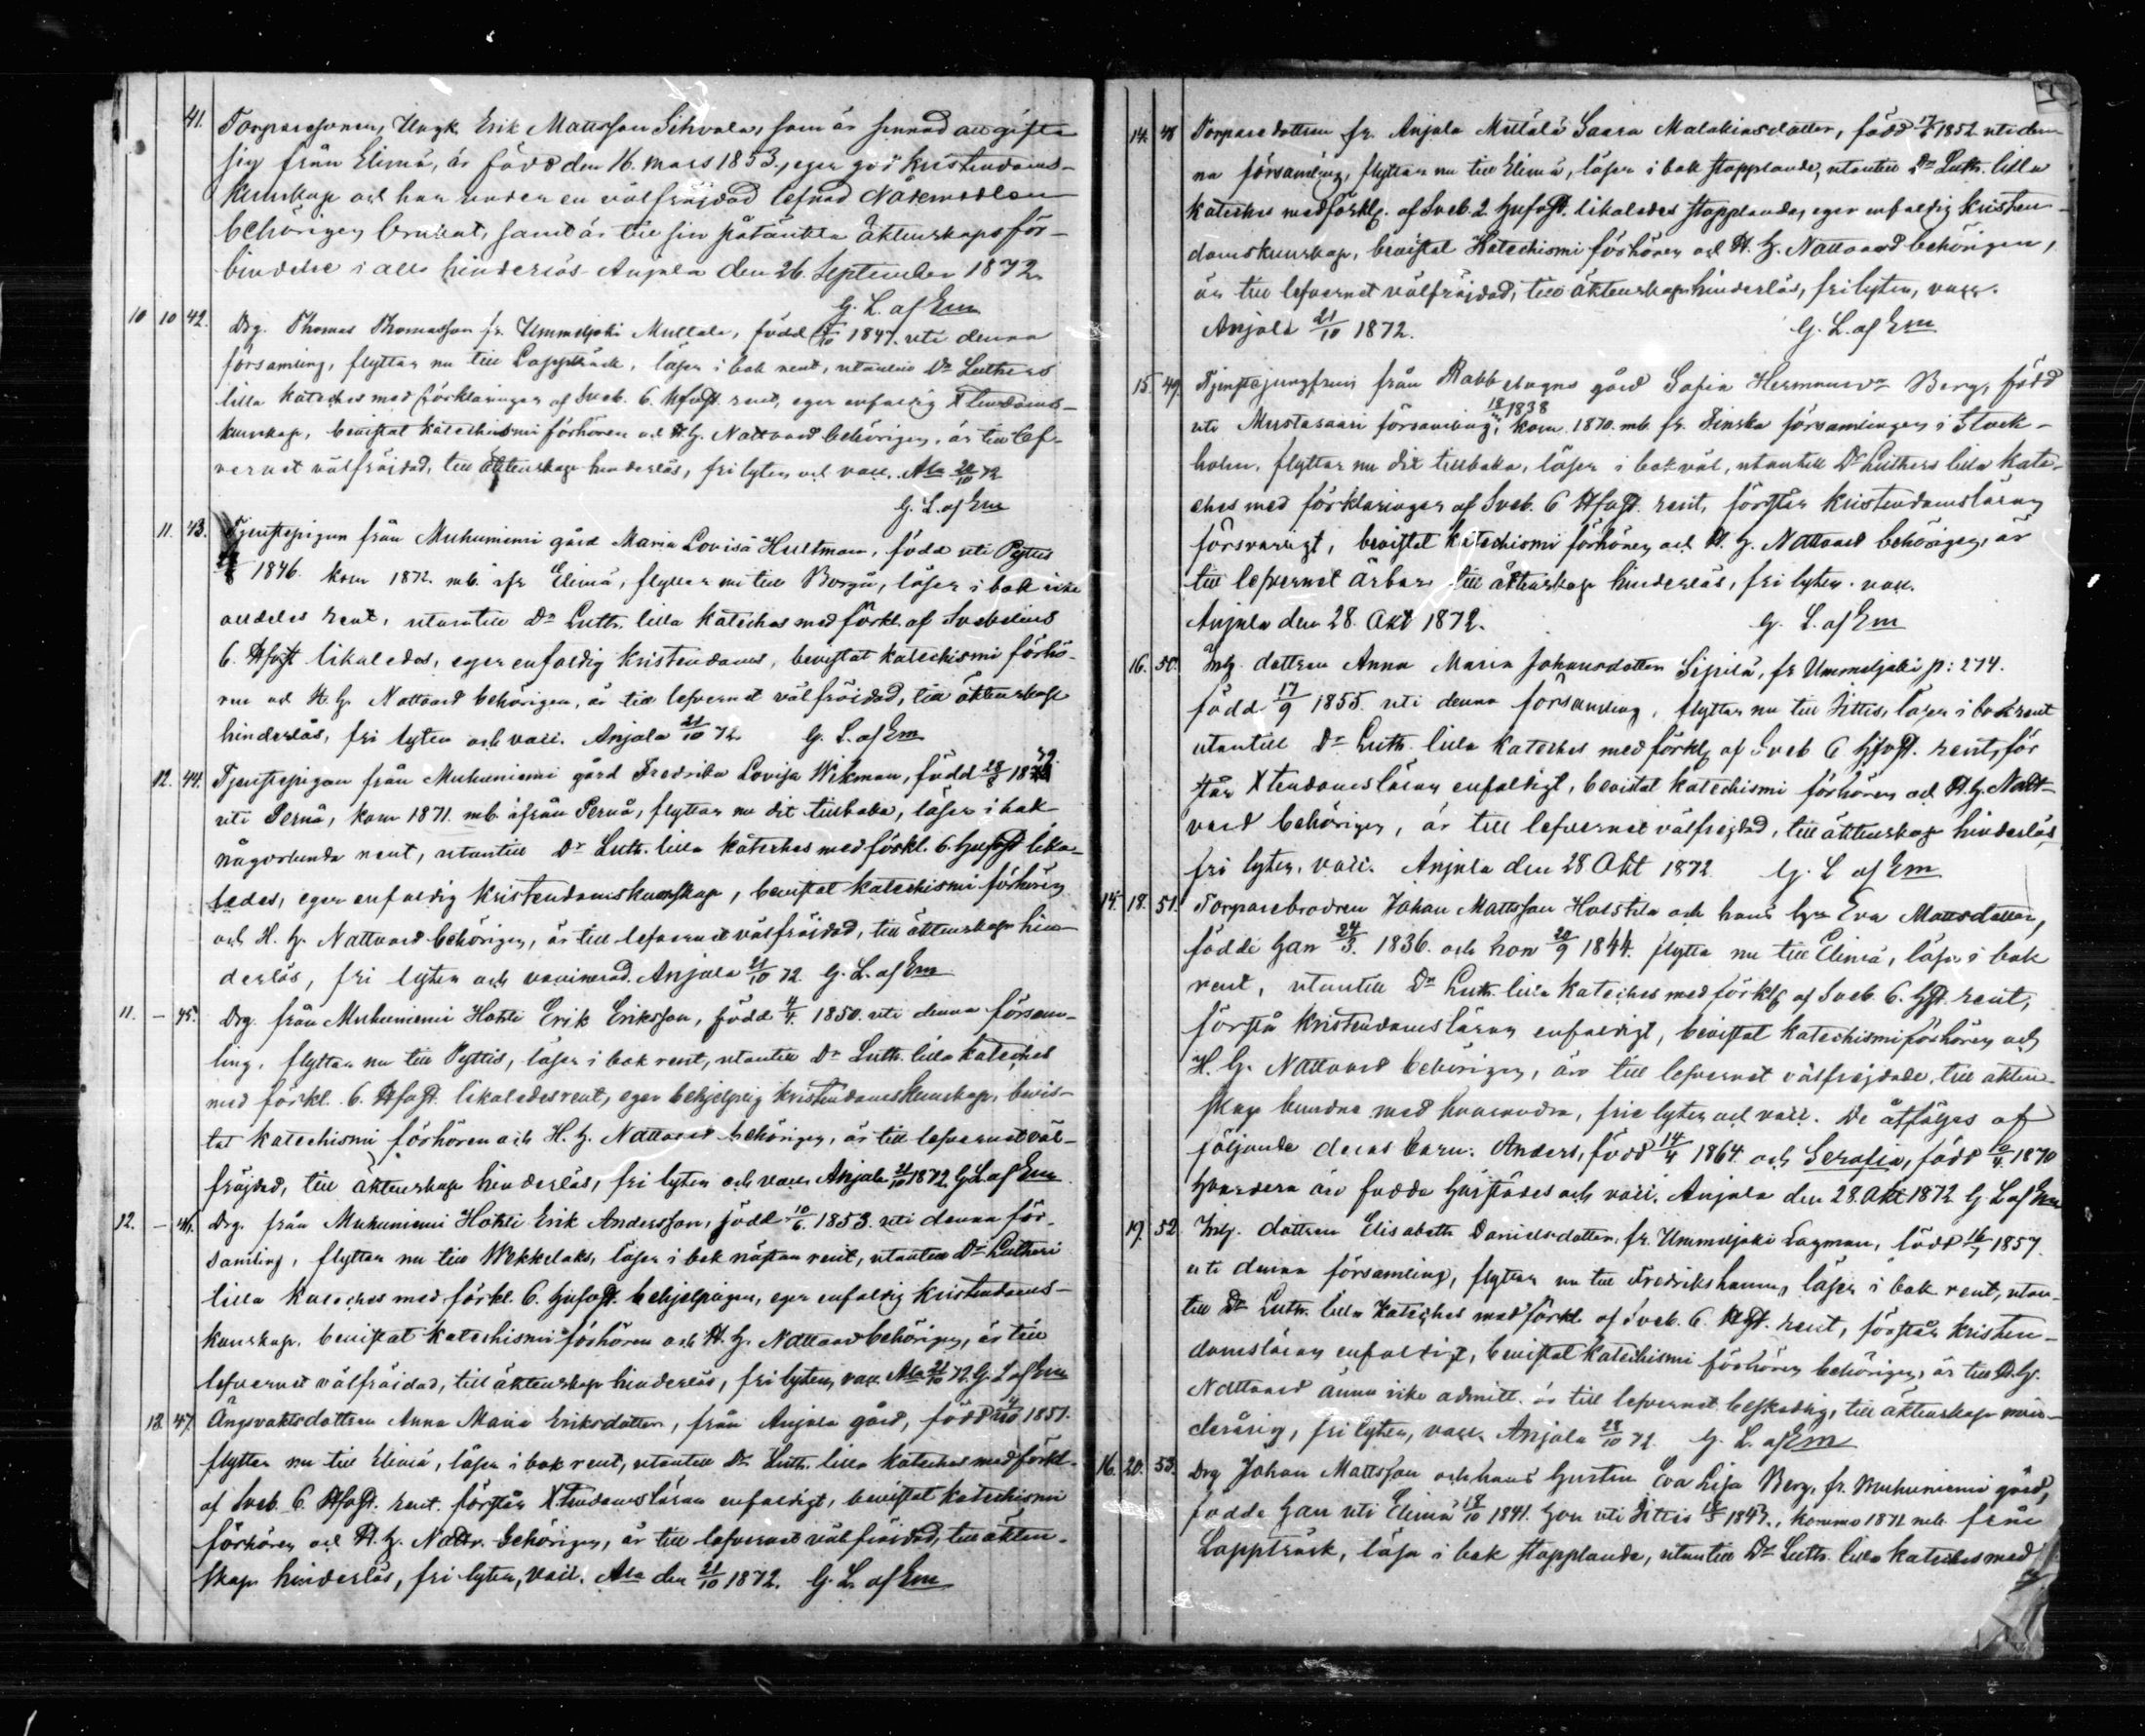 41. Torparesonen, Ungk. Erik Mattsson Sihvola, som är sinnad att gifta
sig från Elimä, är född den 16. mars 1853, eger god kristendoms-
kunskap och har under en välfräjdad lefnad Nådemedlen
behörigen brukat, samt är till sin påtänkta äktenskapsför-
bindelse i allo hinderlös Anjala den 26. September 1872.
G. L. af Em
10 10 42. Drg. Thomas Thomasson fr. Ummeljoki Multala, född /10 1847. uti denna
församling, flyttar nu till Lappträsk, läser i bok rent, utantill Dr Luthers
lilla kateches med förklaringar af Sveb. 6. Hfvst. rent, eger enfaldig Xtendoms-
kunskap, bevistat katechismi förhören och H. H. Nattvard behörigen, är till lef-
vernet välfräjdad, till äktenskap hinderlös, fri lyten och vacc. Ala 21/10 72
G. L. af Em
11. 43. Tjenstepigan från Muhuniemi gård Maria Lovisa Hultman, född uti Pyttis
1846. kom 1872. mb. ifr. Elimä, flyttar nu till Borgå, läser i bok icke
alldeles rent, utantill Dr Luth. lilla kateches med förkl. af Svebelius
6. Hfvst likaledes, eger enfaldig kristendoms, bevistat katechismi förhö-
ren och H. H. Nattvard behörigen, är till lefvernet välfräjdad, till äktenskap
hinderlös, fri lyten och vacc. Anjala 21/10 72 G. L. af Em
12. 44. Tjenstepigan från Muhuniemi gård Fredrika Lovisa Wikman, född 28/ 18 39.
uti Pernå, kom 1871. mb. ifrån Pernå, flyttar nu dit tillbaka, läser i bok
någorlunda rent, utantill Dr Luth. lilla kateches med förkl. 6. Hufvst lika-
ledes, eger enfaldig kristendomskunskap, bevistat katechismi förhören
och H. H. Nattvard behörigen, är till lefvernet välfräjdad, till äktenskap hin-
derlös, fri lyten och vaccinerad. Anjala 21/10 72 G. L. af Em
11. – 45. Drg. från Muhuniemi Hohti Erik Eriksson, född 4/4. 1850. uti denna försam-
ling, flyttar nu till Pyttis, läser i bok rent, utantill Dr Luth. lilla kateches
med förkl. 6. Hfvst. likaledes rent, eger behjelplig kristendomskunskap, bevis-
tat katechismi förhören och H. H. Nattvard behörigen, är till lefvernet väl-
fräjdad, till äktenskap hinderlös, fri lyten och vacc. Anjala 21/10 1872 G L af Em
12. – 46. Drg. från Muhuniemi Hohti Erik Andersson, född 10/6. 1853. uti denna för-
samling, flyttar nu till Wekkelaks, läser i bok nästan rent, utantill Dr Lutheri
lilla kateches med förkl. 6. Hufvst. behjelpligen, eger enfaldig kristendoms-
kunskap. bevistat katechismi förhören och H. H. Nattvard behörigen, är till
lefvernet välfräjdad, till äktenskap hinderlös, fri lyten, vacc. Ala 21/10 72. G. L af Em
13. 47. Ängsvaktsdottren Anna Maria Eriksdotter, från Anjala gård, född 1851.
flyttar nu till Elimä, läser i bok rent, utantill Dr Luth. lilla kateches med förkl.
af Sveb. 6. Hfvst. rent. förstår Xtendomsläran enfaldigt, bevistat katechismi
förhören och H. H. Nattv. behörigen, är till lefvernet välfräjdad, till äkten-
skap hinderlös, fri lyten, vacc. Ala den 21/10 1872. G. L. af Em
14. 48 Torparedottren fr. Anjala Mettälä Saara Malakiasdotter, född 1852 uti den-
na församling, flyttar nu till Elimä, läser i bok stapplande, utantill Dr Luth. lilla
kateches med förklg. af Sveb. 2. Hufvst. likaledes stapplande, eger enfaldig kristen-
domskunskap, bevistat Katechismi förhören och H. H. Nattvard behörigen,
är till lefvernet välfräjdad, till äktenskap hinderlös, fri lyten, vacc.
Anjala 21/10 1872. G. L. af Em
15. 49. Tjenstejungfrun från Rabbelugns gård Sofia Hermansdr Berg, född
uti Mustasaari församling, 18/ 1838 kom. 1870. mb. fr. Finska församlingen i Stock-
holm, flyttar nu dit tillbaka, läser i bok väl, utantill Dr Luthers lilla kate-
ches med förklaringar af Sveb. 6 Hfvst. rent, förstår kristendomsläran
försvarligt, bevistat katechismi förhören och H. H. Nattvard behörigen, är
till lefvernet ärbar, till äktenskap hinderlös, fri lyten. vacc.
Anjala den 28. Okt 1872. G. L. af Em
16. 50. Inh. dottren Anna Maria Johansdotter Sipilä, fr Ummeljoki p: 274.
född 17/9 1855. uti denna församling, flyttar nu till Iittis, läser i bok rent
utantill Dr Luth. lilla kateches med förklg af Sveb 6 Hfvst. rent, för
står Xtendomsläran enfaldigt, bevistat katechismi förhören och H. H. Natt-
vard behörigen, är till lefvernet välfrejdad, till äktenskap hinderlös
fri lyten, vacc. Anjala den 28 Okt 1872. G. L af Em
15. 18. 51. Torparebrodren Johan Mattsson Holstila och hans h Eva Mattsdotter,
födde Han 24/3. 1836. och hon 20/9 1844. flytta nu till Elimä, läser i bok
rent, utantill Dr Luth. lilla kateches med förklg af Sveb. 6. Hfst. rent,
förstå kristendomsläran enfaldigt, bevistat katechismi förhören och
H. H. Nattvard behörigen, äro till lefvernet välfrejdade, till äkten-
skap bundna med hvarandra, frie lyten och vacc. De åtföljas af
följande deras barn: Anders, född 14/4 1864. och Serafia, född /4. 1870
hvardera äro födda härstädes och vacc. Anjala den 28. Okt 1872 G. L af Em
19. 52. Inh. dottren Elisabeth Danielsdotter, fr. Ummeljoki Lagman, född 16/7 1857.
uti denna församling, flyttar nu till Fredrikshamn, läser i bok rent, utan-
till Dr Luth. lilla Kateches med förkl af Sveb. 6. Hfst. rent, förstår kristen-
domsläran enfaldigt, bevistat katechismi förhören behörigen, är till H. H.
Nattvard ännu icke admitt. är till lefvernet beskedlig, till äktenskap min-
derårig, fri lyten, vacc. Anjala 28/10 72. G. L. af Em
16. 20. 53. Drg Johan Mattsson och hans hustru Eva Lisa Berg, fr. Muhuniemi gård,
födde Han uti Elimä 18/10 1841. Hon uti Iittis 1847., komma 1871 mb. från
Lappträsk, läsa i bok stapplande, utantill Dr Luth. lilla kateches med